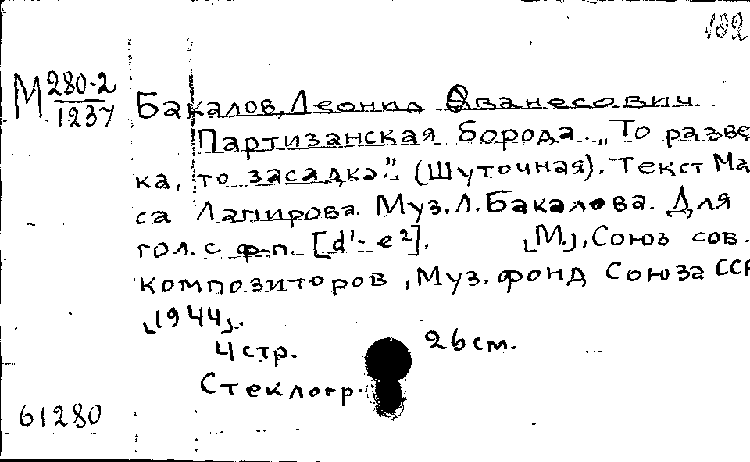 132
М 280-2
1237
Бакалов, Леонид Ованесович
Партизанская борода. „То разве
ка, то засадка." (Шуточная). Текст Ма
са Лапирова. Муз. Л. Бакалова. Для
гол. с ф.п. [d¹- e²]. [М.], Союз сов.
композиторов, Муз. фонд Союза ССР
[1944].
4 стр. 26 см.
Стеклогр.
61280